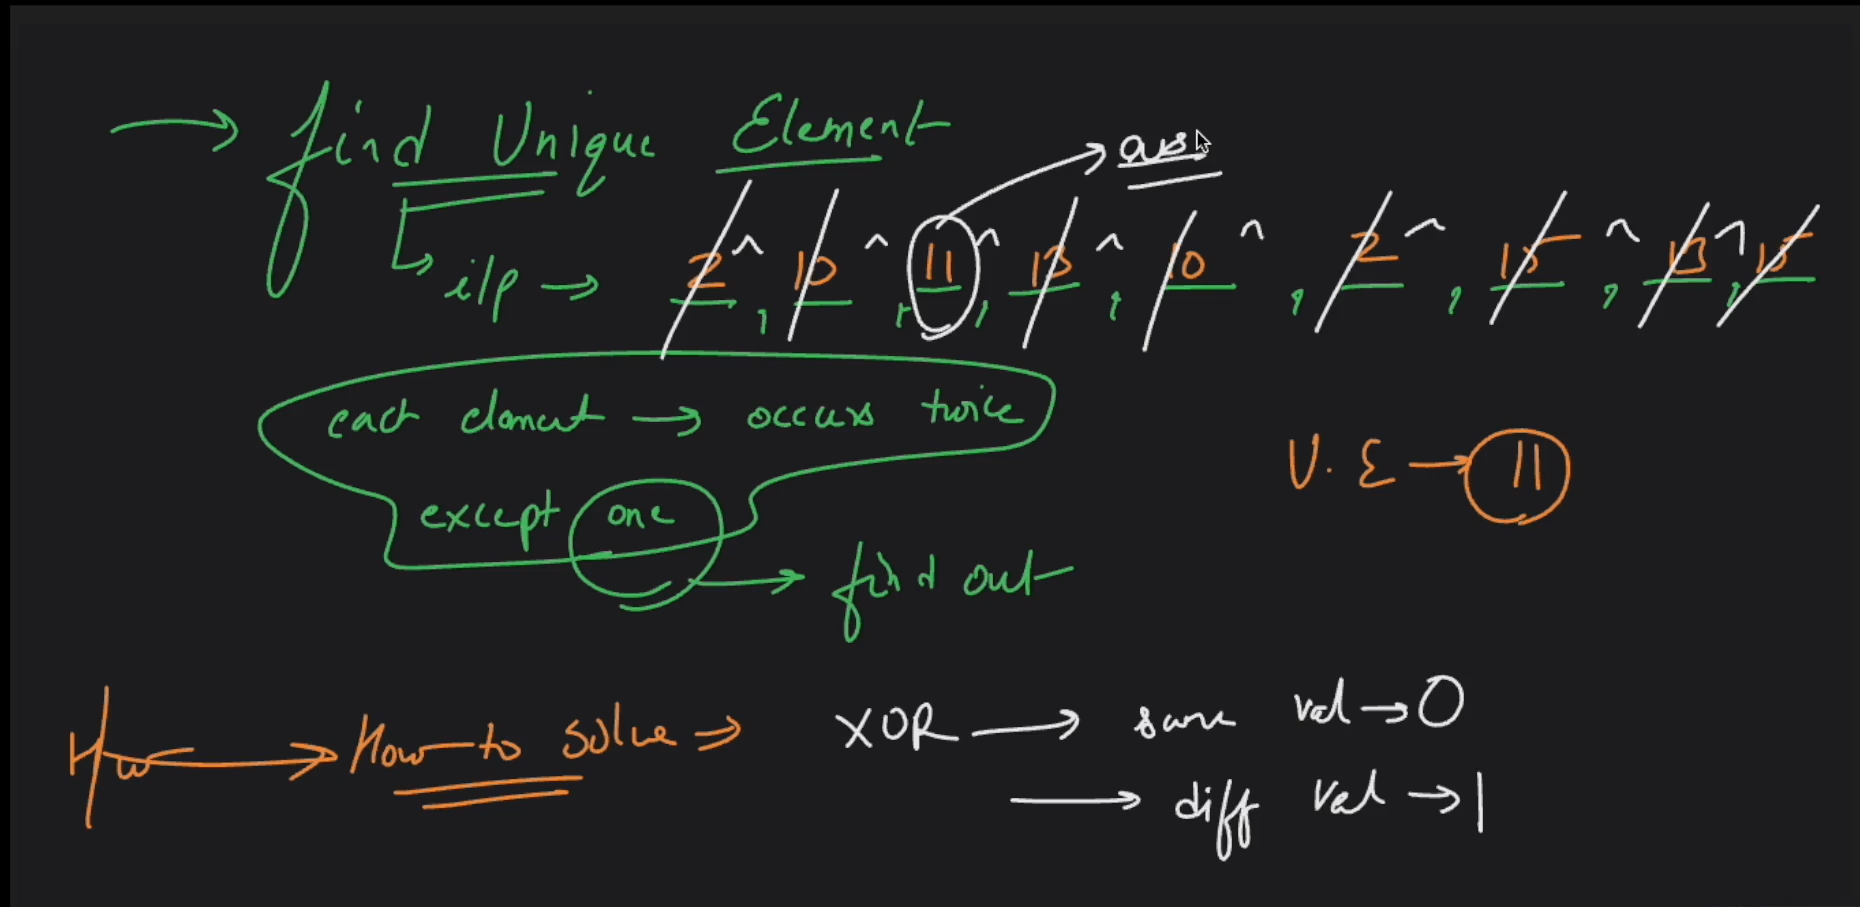 → find Unique Element
→ ans
i/p → 2 ^, 10 ^, 11 ^, 13 ^, 10 ^, 2 ^, 15 ^, 13 ^, 15
each element → occurs twice
except one
→ find out
U.E → 11
H/w → How to solve ⇒ XOR → same val → 0
→ diff val → 1